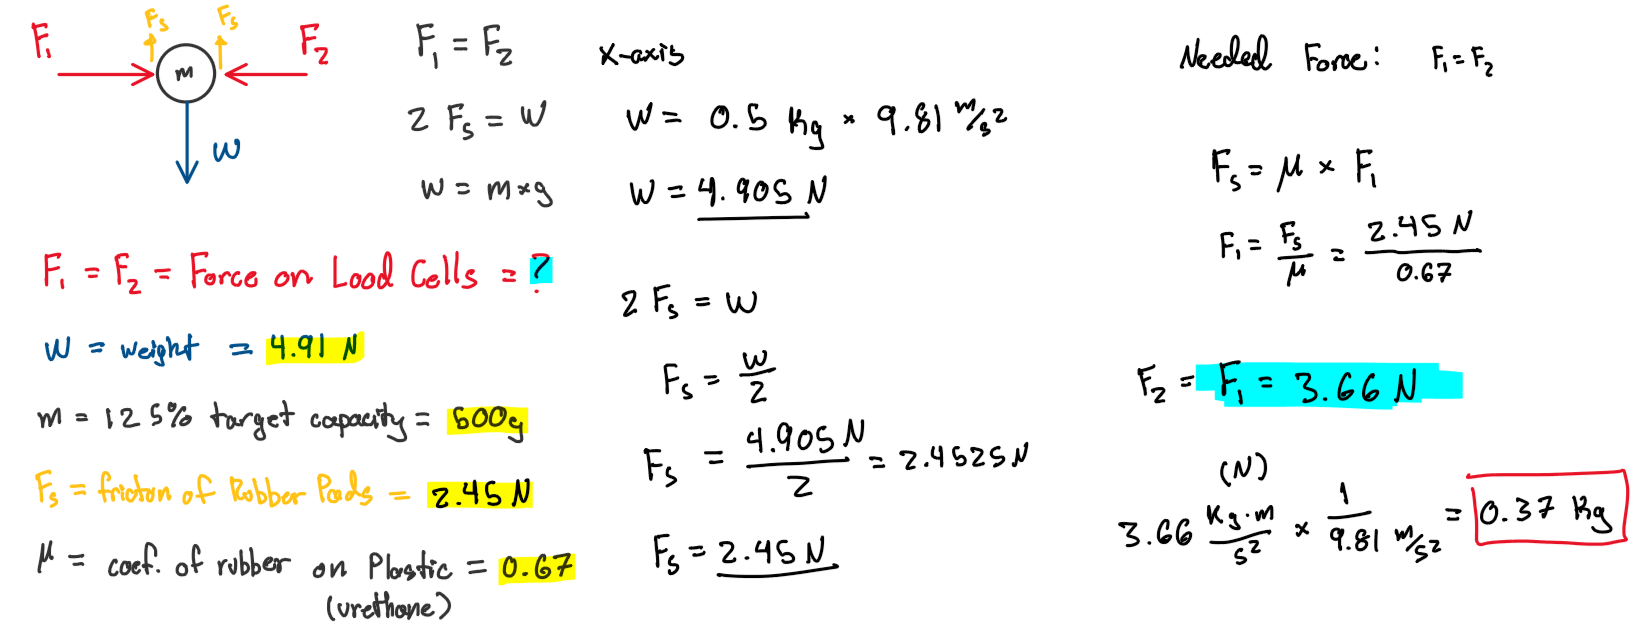 F₁ Fs Fs F₂
m
W
F₁ = F₂
2 Fs = W
W = m × g
F₁ = F₂ = Force on Load Cells = ?
W = weight = 4.91 N
m = 125% target capacity = 500g
Fs = friction of Rubber Pads = 2.45 N
μ = coef. of rubber on Plastic = 0.67
(urethane)
X-axis
W = 0.5 Kg × 9.81 m/s²
W = 4.905 N
2 Fs = W
Fs = W/2
Fs = 4.905 N / 2 = 2.4525 N
Fs = 2.45 N
Needed Force: F₁ = F₂
Fs = μ × F₁
F₁ = Fs/μ = 2.45 N / 0.67
F₂ = F₁ = 3.66 N
(N)
3.66 Kg·m/s² × 1/9.81 m/s² = 0.37 Kg